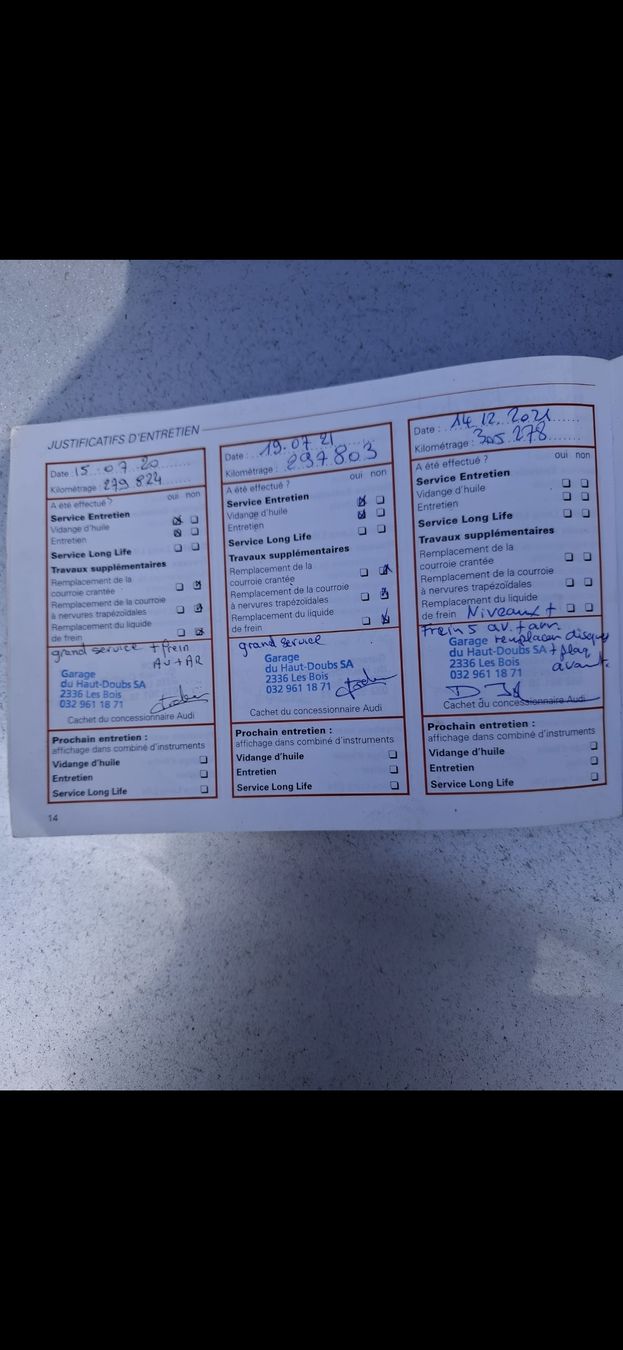 JUSTIFICATIFS D'ENTRETIEN
Date 15.07.20
Kilométrage : 279 824
A été effectué ? oui non
Service Entretien
Vidange d'huile
Entretien
Service Long Life
Travaux supplémentaires
Remplacement de la
courroie crantée
Remplacement de la courroie
à nervures trapézoïdales
Remplacement du liquide
de frein
grand service + frein
AV + AR
Garage
du Haut-Doubs SA
2336 Les Bois
032 961 18 71
Cachet du concessionnaire Audi
Prochain entretien :
affichage dans combiné d'instruments
Vidange d'huile
Entretien
Service Long Life
14
Date : 19.07.21
Kilométrage : 297803
A été effectué ? oui non
Service Entretien
Vidange d'huile
Entretien
Service Long Life
Travaux supplémentaires
Remplacement de la
courroie crantée
Remplacement de la courroie
à nervures trapézoïdales
Remplacement du liquide
de frein
grand service
Garage
du Haut-Doubs SA
2336 Les Bois
032 961 18 71
Cachet du concessionnaire Audi
Prochain entretien :
affichage dans combiné d'instruments
Vidange d'huile
Entretien
Service Long Life
Date : 14.12.2021
Kilométrage : 305.278
A été effectué ? oui non
Service Entretien
Vidange d'huile
Entretien
Service Long Life
Travaux supplémentaires
Remplacement de la
courroie crantée
Remplacement de la courroie
à nervures trapézoïdales
Remplacement du liquide
de frein Niveaux +
Freins av. + arr.
Garage remplacer disques
du Haut-Doubs SA + plaq
2336 Les Bois avant.
032 961 18 71
Cachet du concessionnaire Audi
Prochain entretien :
affichage dans combiné d'instruments
Vidange d'huile
Entretien
Service Long Life